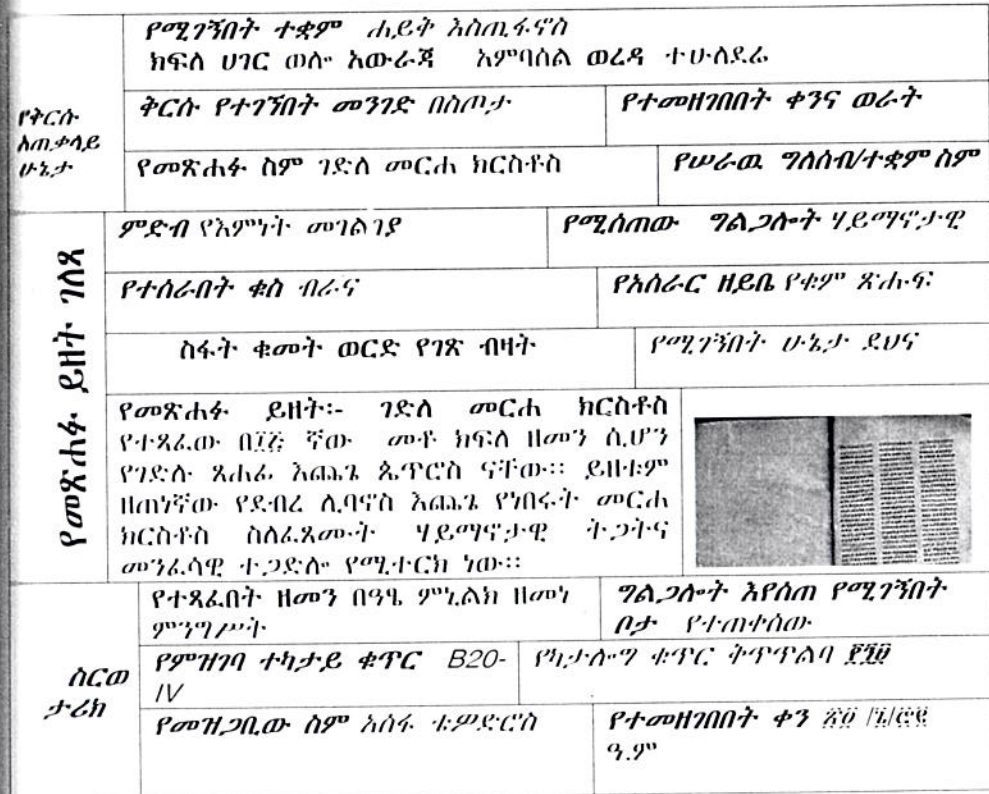 የሚገኝበት ተቋም ሐይቅ እስጢፋኖስ
ክፍለ ሀገር ወሎ አውራጃ አምባሰል ወረዳ ተሁለደሬ
የቅርሱ
አጠቃላይ
ሁኔታ
ቅርሱ የተገኘበት መንገድ በስጦታ
የተመዘገበበት ቀንና ወራት
የመጽሐፉ ስም ገድለ መርሐ ክርስቶስ
የሠራዉ ግለሰብ/ተቋም ስም
የመጽሐፉ ይዘት ገለጻ
ምድብ የእምነት መገልገያ
የሚሰጠው ግልጋሎት ሃይማኖታዊ
የተሰራበት ቁስ ብራና
የአሰራር ዘይቤ የቁም ጽሑፍ
ስፋት ቁመት ወርድ የገጽ ብዛት
የሚገኝበት ሁኔታ ደህና
የመጽሐፉ ይዘት፡- ገድለ መርሐ ክርስቶስ
የተጻፈው በ ኛው መቶ ክፍለ ዘመን ሲሆን
የገድሉ ጸሐፊ እጨጌ ጴጥሮስ ናቸው፡፡ ይዘቱም
ዘጠነኛው የደብረ ሊባኖስ እጨጌ የነበሩት መርሐ
ክርስቶስ ስለፈጸሙት ሃይማኖታዊ ትጋትና
መንፈሳዊ ተጋድሎ የሚተርክ ነው፡፡
ስርወ
ታሪክ
የተጻፈበት ዘመን በዓፄ ምኒልክ ዘመነ
ምንግሥት
ግልጋሎት እየሰጠ የሚገኝበት
ቦታ የተጠቀሰው
የምዝገባ ተከታታይ ቁጥር B20-
IV
የካታሎግ ቁጥር ቅጥጥልባ
የመዝጋቢው ስም አሰፋ ቴዎድሮስ
የተመዘገበበት ቀን
ዓ.ም